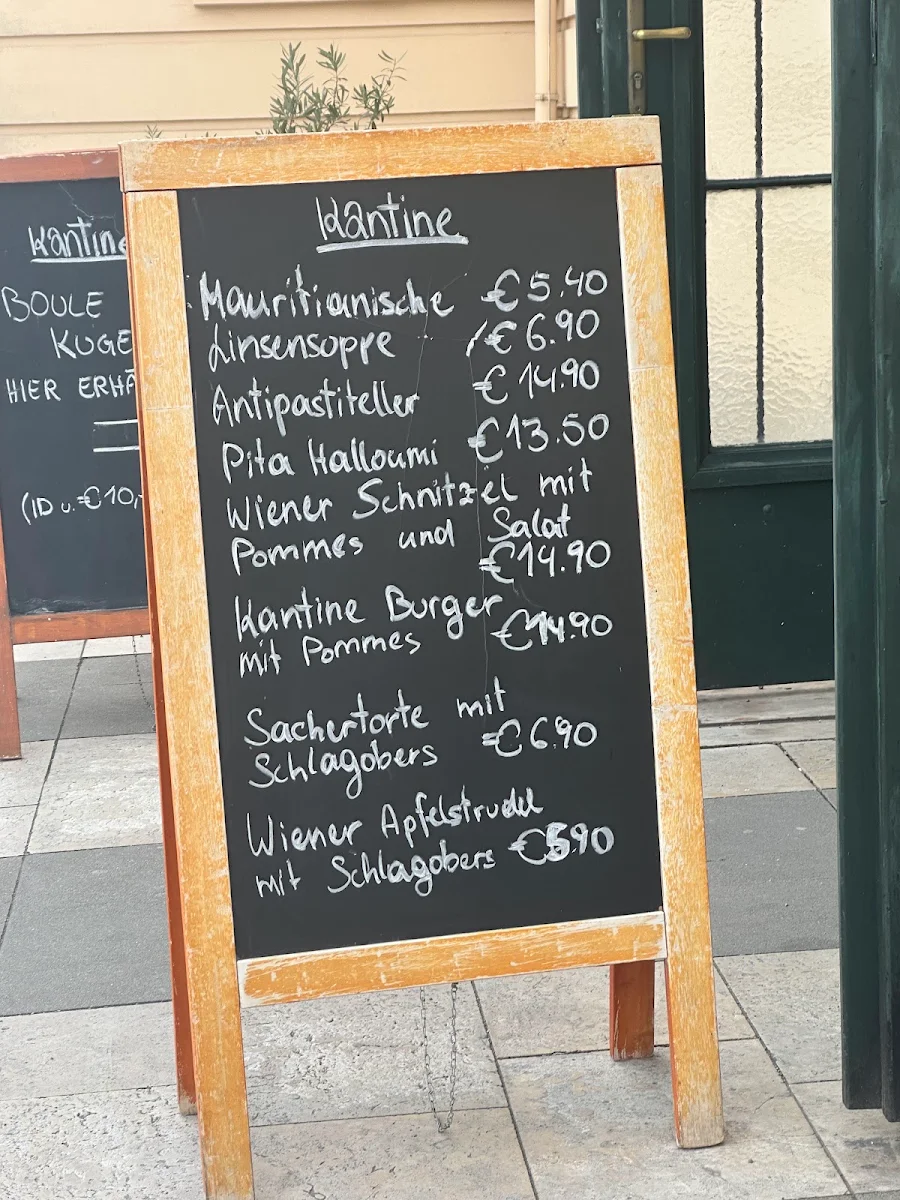 Kantine
Mauritianische €5.40
Linsensoppe /€6.90
Antipastiteller €14.90
Pita Halloumi €13.50
Wiener Schnitzel mit
Pommes und Salat
€14.90
Kantine Burger
mit Pommes €14.90
Sachertorte mit
Schlagobers €6.90
Wiener Apfelstrudel
mit Schlagobers €5.90
Kantine
BOULE
KUGE
HIER ERHÄ
(ID u. €10,